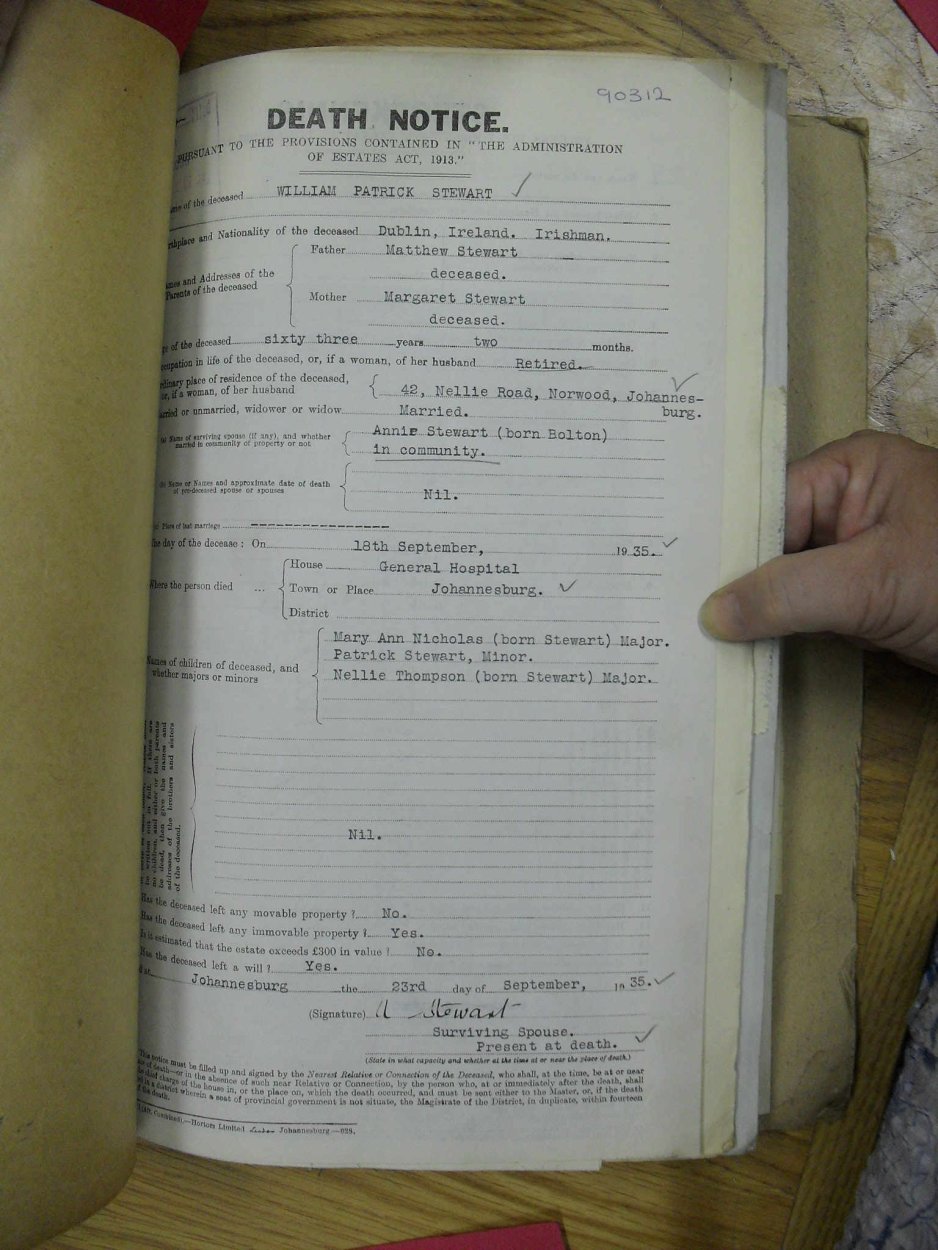 90312
DEATH NOTICE.
PURSUANT TO THE PROVISIONS CONTAINED IN "THE ADMINISTRATION
OF ESTATES ACT, 1913."
of the deceased WILLIAM PATRICK STEWART
and Nationality of the deceased Dublin, Ireland. Irishman.
Names and Addresses of the Parents of the deceased
Father Matthew Stewart
deceased.
Mother Margaret Stewart
deceased.
of the deceased sixty three years two months.
in life of the deceased, or, if a woman, of her husband Retired.
place of residence of the deceased,
or, if a woman, of her husband 42, Nellie Road, Norwood, Johannes-
burg.
or unmarried, widower or widow Married.
(a) Name of surviving spouse (if any), and whether
married in community of property or not
Annie Stewart (born Bolton)
in community.
(b) Name or Names and approximate date of death
of pre-deceased spouse or spouses
Nil.
Place of last marriage ----------------
day of the decease: On 18th September, 1935.
Where the person died ...
House General Hospital
Town or Place Johannesburg.
District
Names of children of deceased, and
whether majors or minors
Mary Ann Nicholas (born Stewart) Major.
Patrick Stewart, Minor.
Nellie Thompson (born Stewart) Major.
be dead, then give the names and
addresses of the brothers and sisters
of the deceased.
Nil.
Has the deceased left any movable property? No.
Has the deceased left any immovable property? Yes.
Is it estimated that the estate exceeds £300 in value? No.
Has the deceased left a will? Yes.
at Johannesburg the 23rd day of September, 1935.
(Signature) A Stewart
Surviving Spouse.
Present at death.
(State in what capacity and whether at the time at or near the place of death.)
This notice must be filled up and signed by the Nearest Relative or Connection of the Deceased, who shall, at the time, be at or near
of death—or in the absence of such near Relative or Connection, by the person who, at or immediately after the death, shall
charge of the house in, or the place on, which the death occurred, and must be sent either to the Master, or, if the death
in a district wherein a seat of provincial government is not situate, the Magistrate of the District, in duplicate, within fourteen
the death.
Hortors Limited Johannesburg—028.